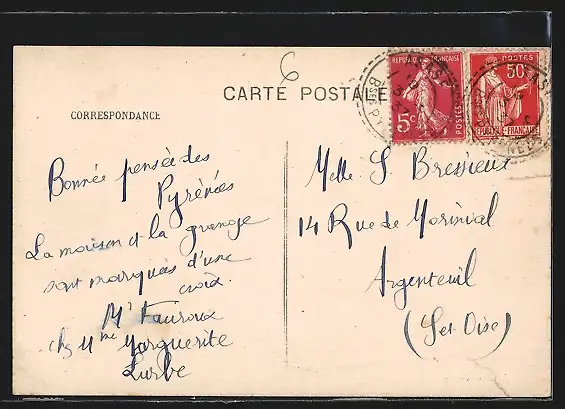 6
CARTE POSTALE
CORRESPONDANCE
REPUBLIQUE FRANÇAISE
5c
POSTES
POSTES
50c
REPUBLIQUE FRANÇAISE
Bonnée pensée des
Pyrénées
La maison et la grange
sont marqués d'une
croix.
Mr Fauroux
chez Mme Marguerite
Lurbe
Melle S Bressieux
14 Rue de Morinval
Argenteuil
(Set Oise)